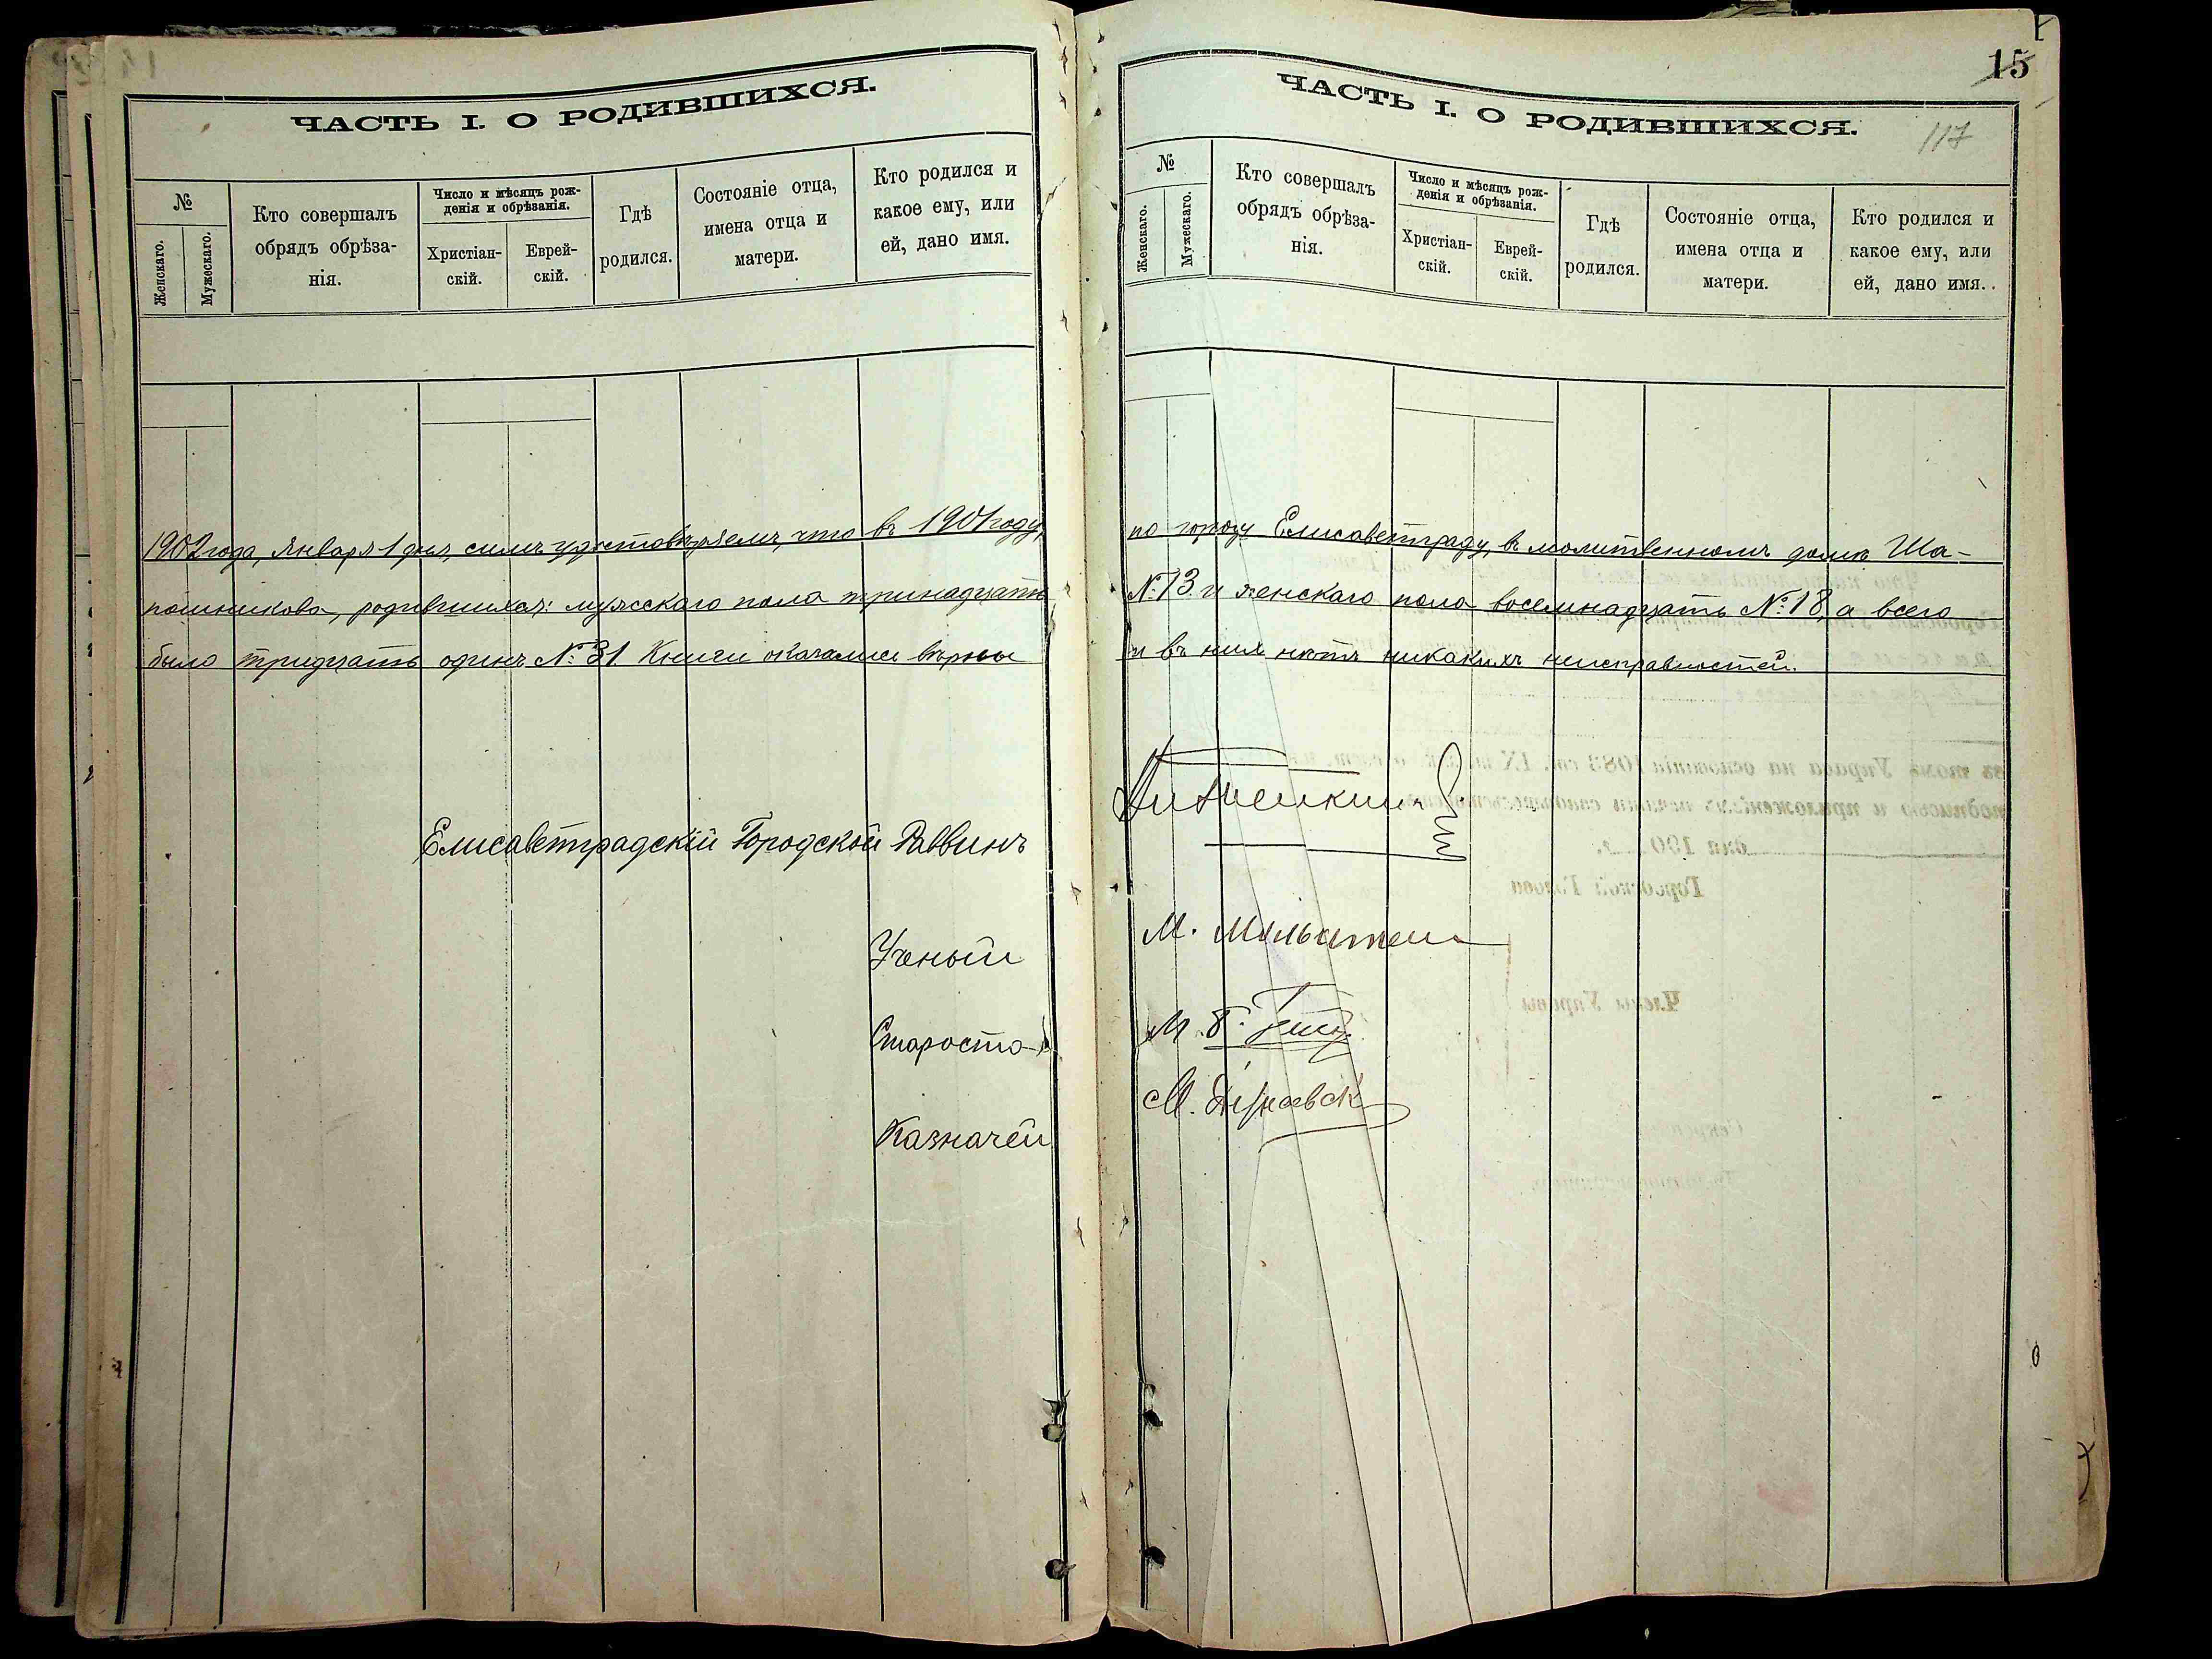 ЧАСТЬ I. О РОДИВШИХСЯ.
№
Женскаго.
Мужескаго.
Кто совершалъ
обрядъ обрѣза-
нія.
Число и мѣсяцъ рож-
денія и обрѣзанія.
Христіан-
скій.
Еврей-
скій.
Гдѣ
родился.
Состояніе отца,
имена отца и
матери.
Кто родился и
какое ему, или
ей, дано имя.
1902 года, Января 1 дня, симъ удостовѣряемъ, что въ 1901 году,
пошникова, родившихся: мужескаго пола тринадцать
было тридцать одинъ №: 31. Книги оказались вѣрны
Елисаветградскій Городской Раввинъ
Ученый
Староста
Казначей
15
117
ЧАСТЬ I. О РОДИВШИХСЯ.
№
Женскаго.
Мужескаго.
Кто совершалъ
обрядъ обрѣза-
нія.
Число и мѣсяцъ рож-
денія и обрѣзанія.
Христіан-
скій.
Еврей-
скій.
Гдѣ
родился.
Состояніе отца,
имена отца и
матери.
Кто родился и
какое ему, или
ей, дано имя.
по городу Елисаветграду, въ молитвенномъ домѣ Ша-
№: 13. и женскаго пола восемнадцать №: 18, а всего
и въ нихъ нѣтъ никакихъ неисправностей.
М.
М.
М.